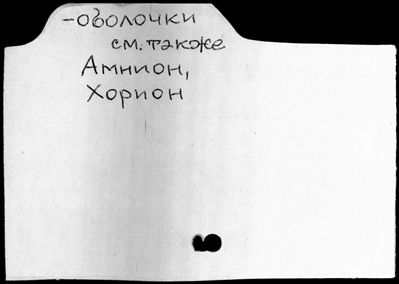 -оболочки
см. также
Амнион,
Хорион